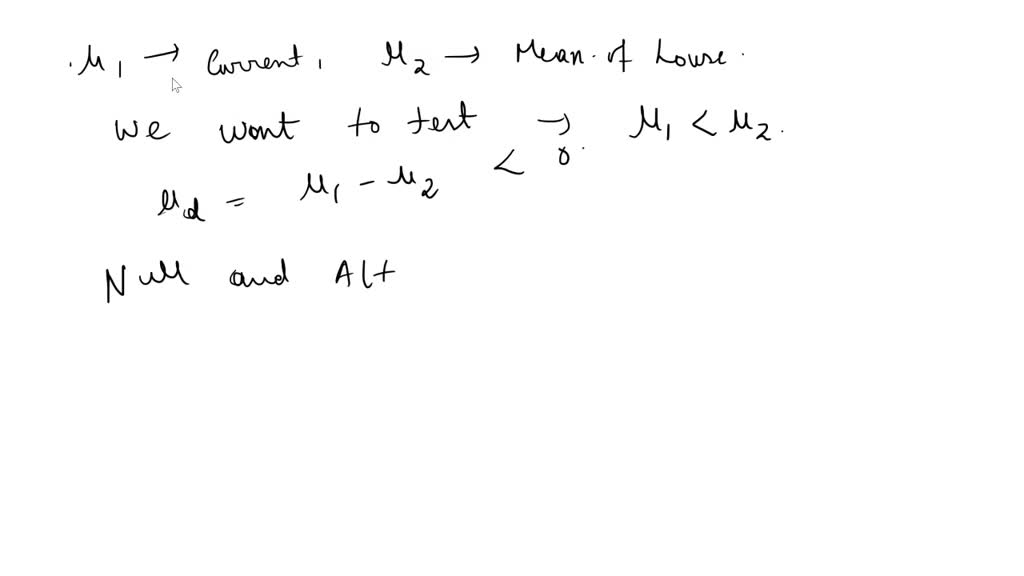 . μ₁ → Current, μ₂ → Mean of Louse.
We want to test → μ₁ < μ₂.
μd = μ₁ - μ₂ < 0.
Null and Alt